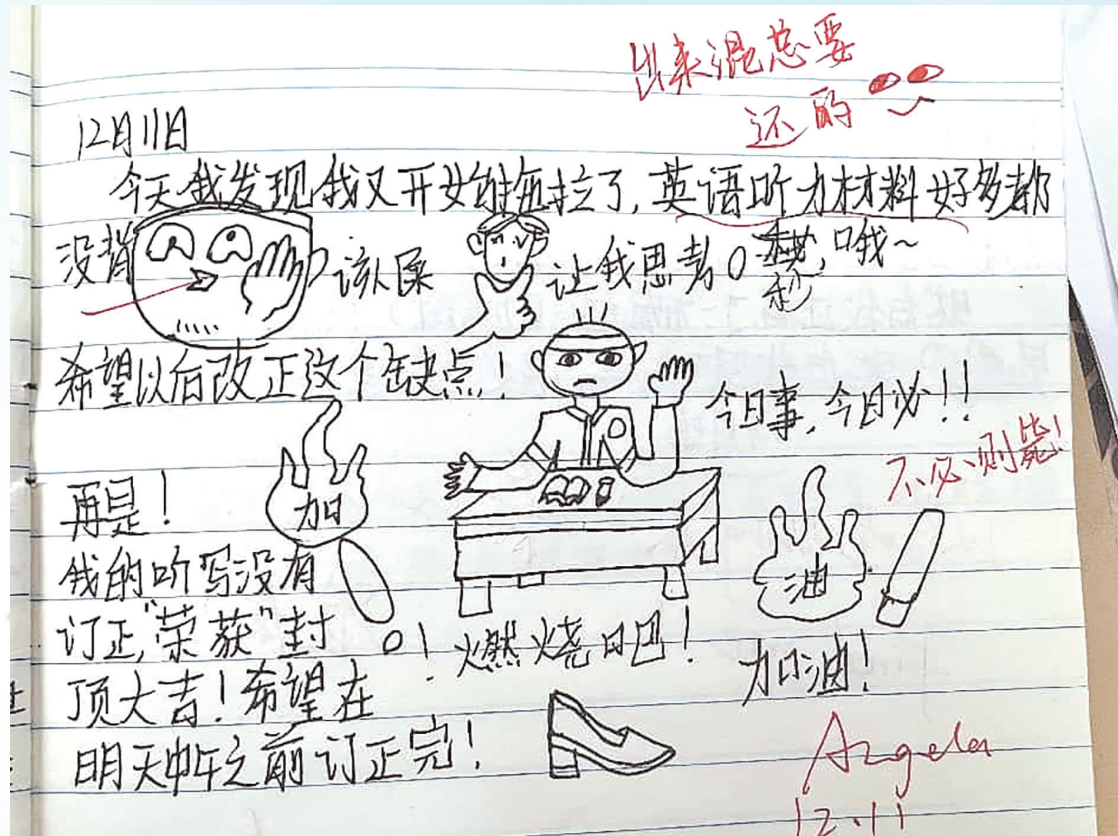 出来混总要
还的
12月11日
今天我发现我又开始拖拉了,英语听力材料好多都
没背 该人屎 让我思考0秒 哦~
希望以后改正这个缺点!
今日事,今日必!!
不必则毙!
再是!
加
我的听写没有
油
订正,"荣获"封 0! 燃烧吧!
加油!
顶大吉!希望在
明天中午之前订正完!
Angela
12.11